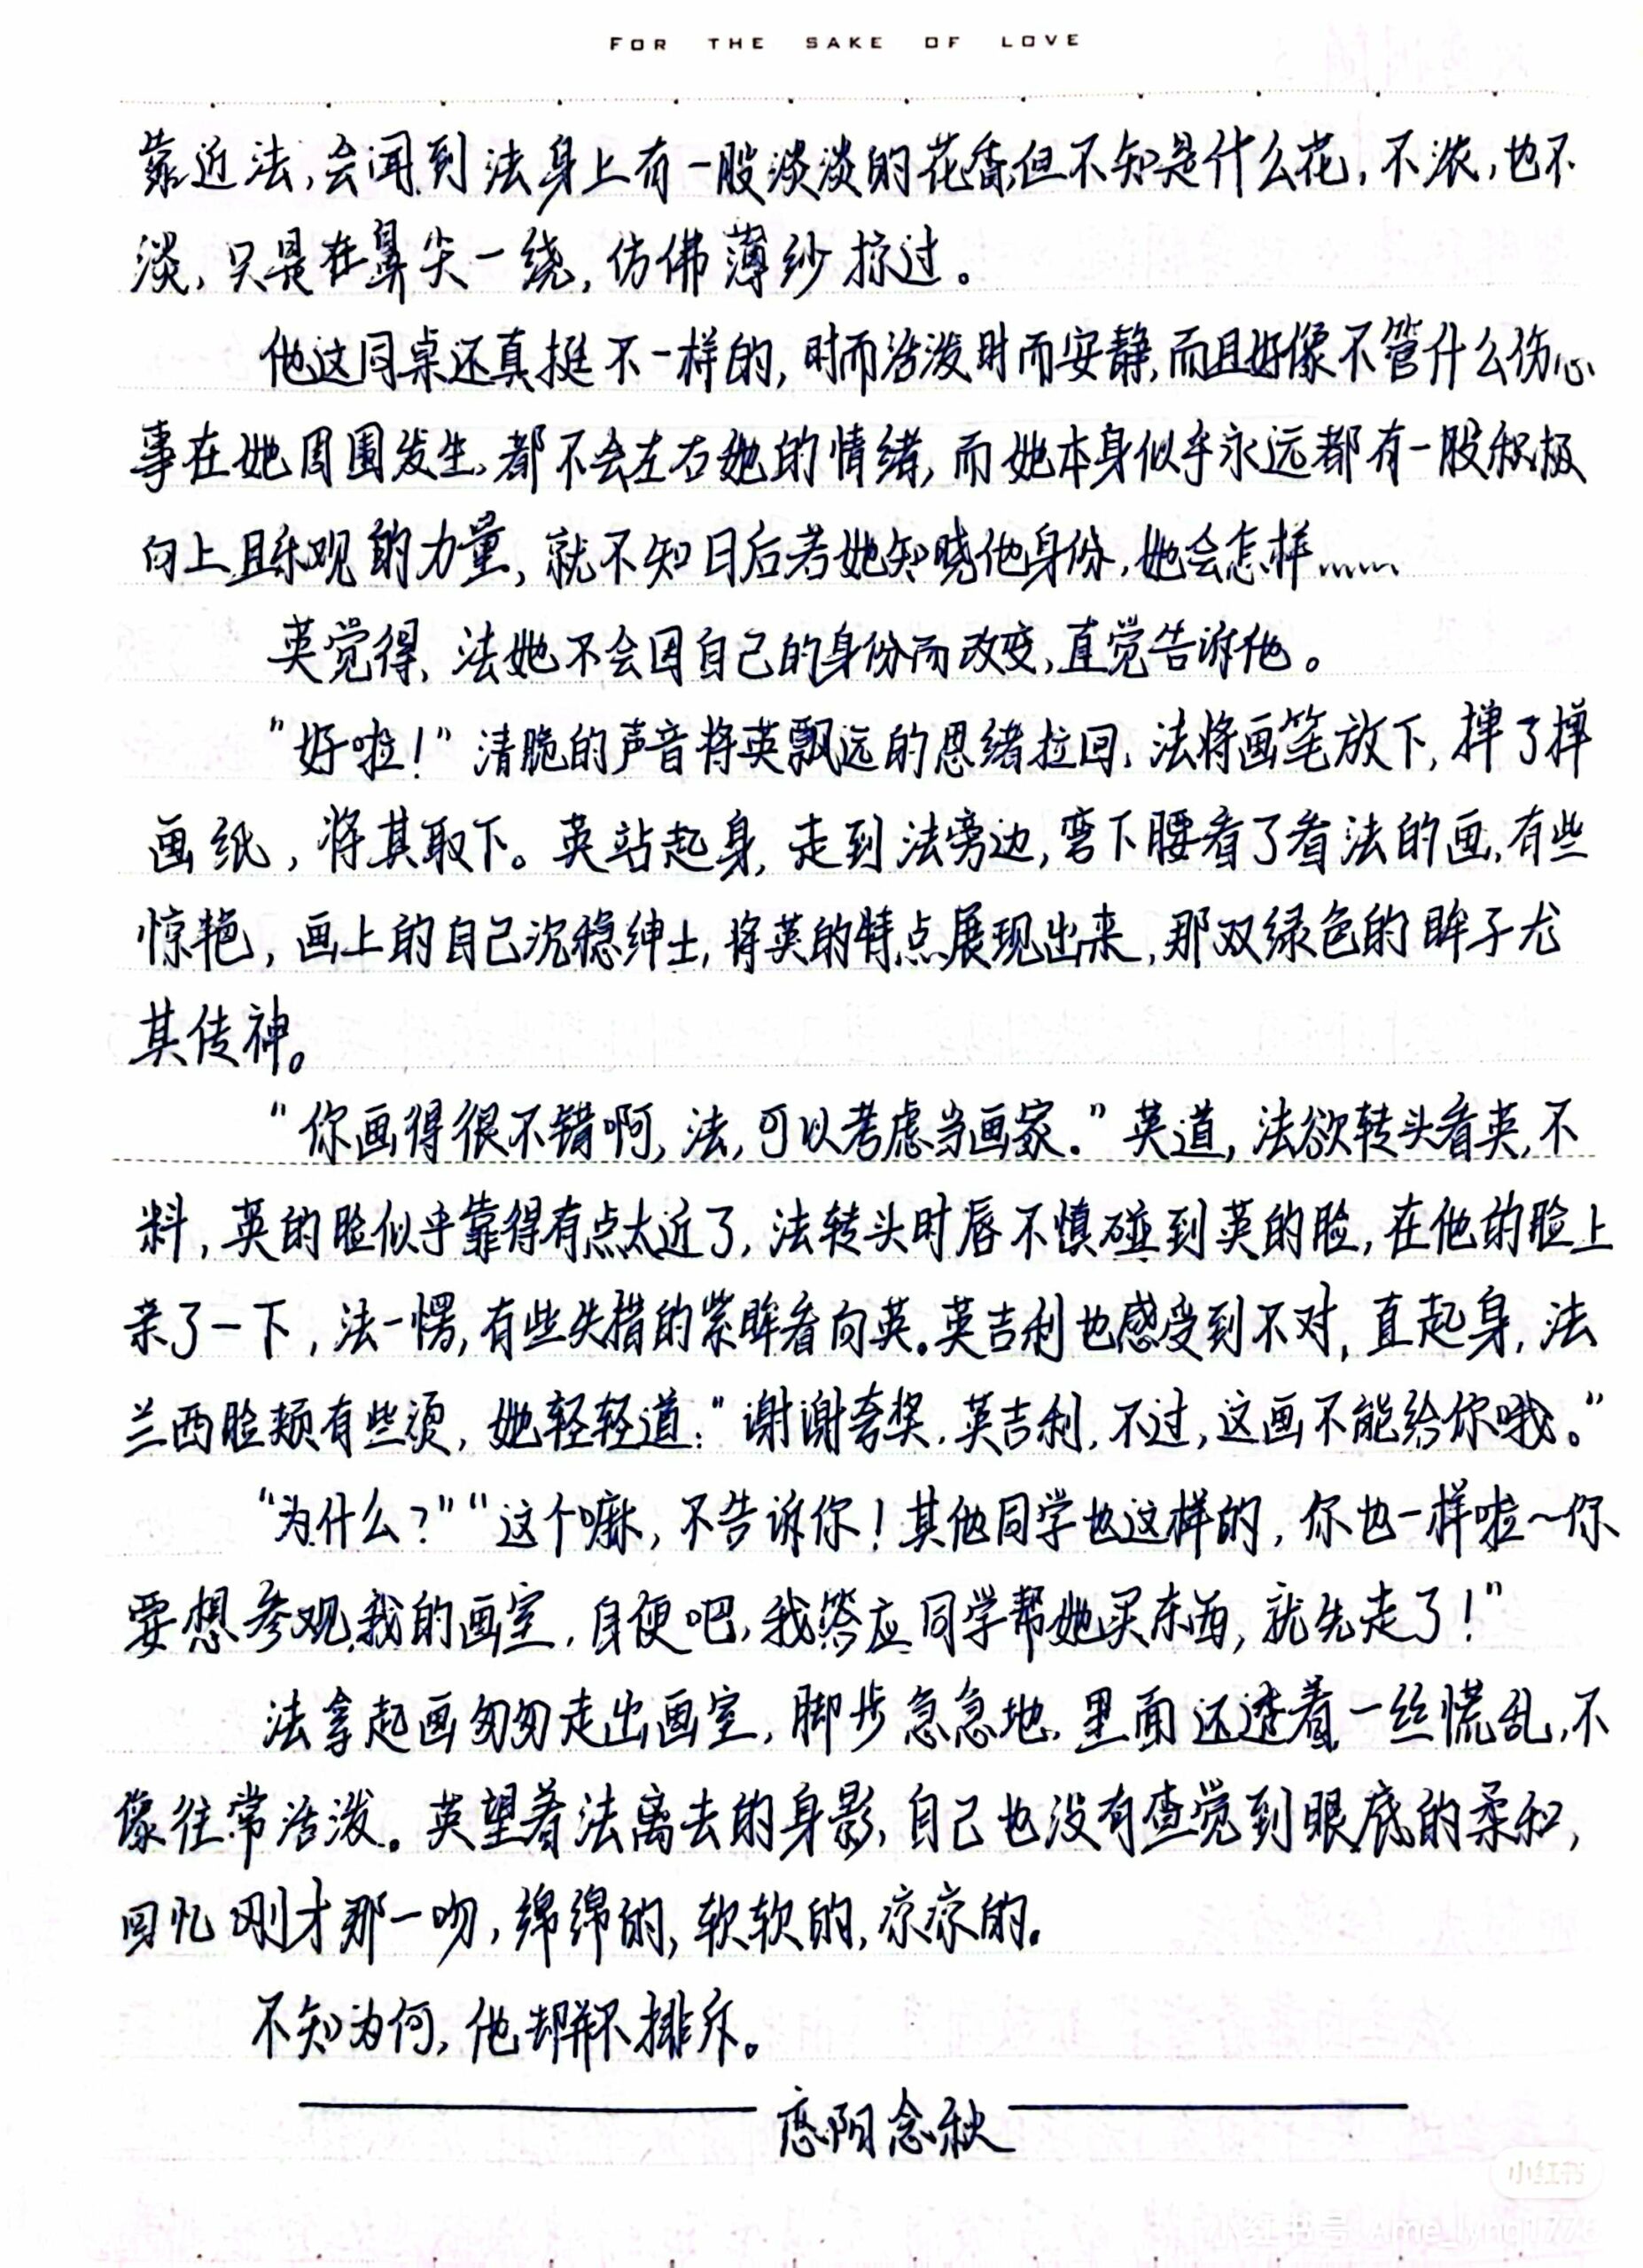 FOR THE SAKE OF LOVE
靠近法,会闻到法身上有一股淡淡的花香,但不知是什么花,不浓,也不
淡,只是在鼻尖一绕,仿佛薄纱掠过。
他这同桌还真挺不一样的,时而活泼时而安静,而且好像不管什么伤心
事在她周围发生,都不会左右她的情绪,而她本身似乎永远都有一股积极
向上且乐观的力量,就不知日后若她知晓他身份,她会怎样……
英觉得,法她不会因自己的身份而改变,直觉告诉他。
“好啦!”清脆的声音将英飘远的思绪拉回,法将画笔放下,掸了掸
画纸,将其取下。英站起身,走到法旁边,弯下腰看了看法的画,有些
惊艳,画上的自己沉稳绅士,将英的特点展现出来,那双绿色的眸子尤
其传神。
“你画得很不错啊,法,可以考虑当画家.”英道,法欲转头看英,不
料,英的脸似乎靠得有点太近了,法转头时唇不慎碰到英的脸,在他的脸上
亲了一下,法一愣,有些失措的紫眸看向英。英吉利也感受到不对,直起身,法
兰西脸颊有些烫,她轻轻道:“谢谢夸奖,英吉利,不过,这画不能给你哦。”
“为什么?”“这个嘛,不告诉你!其他同学也这样的,你也一样啦~你
要想参观我的画室,自便吧,我答应同学帮她买东西,就先走了!”
法拿起画匆匆走出画室,脚步急急地,里面还透着一丝慌乱,不
像往常活泼。英望着法离去的身影,自己也没有查觉到眼底的柔和,
回忆刚才那一吻,绵绵的,软软的,凉凉的.
不知为何,他却并不排斥。
恋阳念秋
小红书